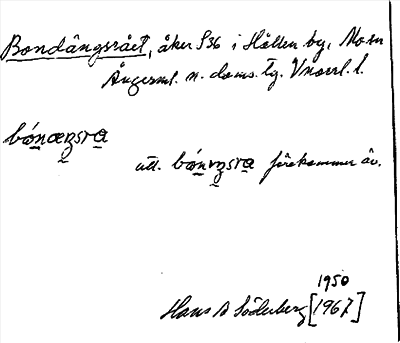 Bondängsrået, åker S36 i Hållen by, Mo sn
Ångerml. n. doms. tg. Vnorrl. l.
bónæŋsra
utt. bónŋsra förekommer äv.
1950
Hans B Söderberg [1967]